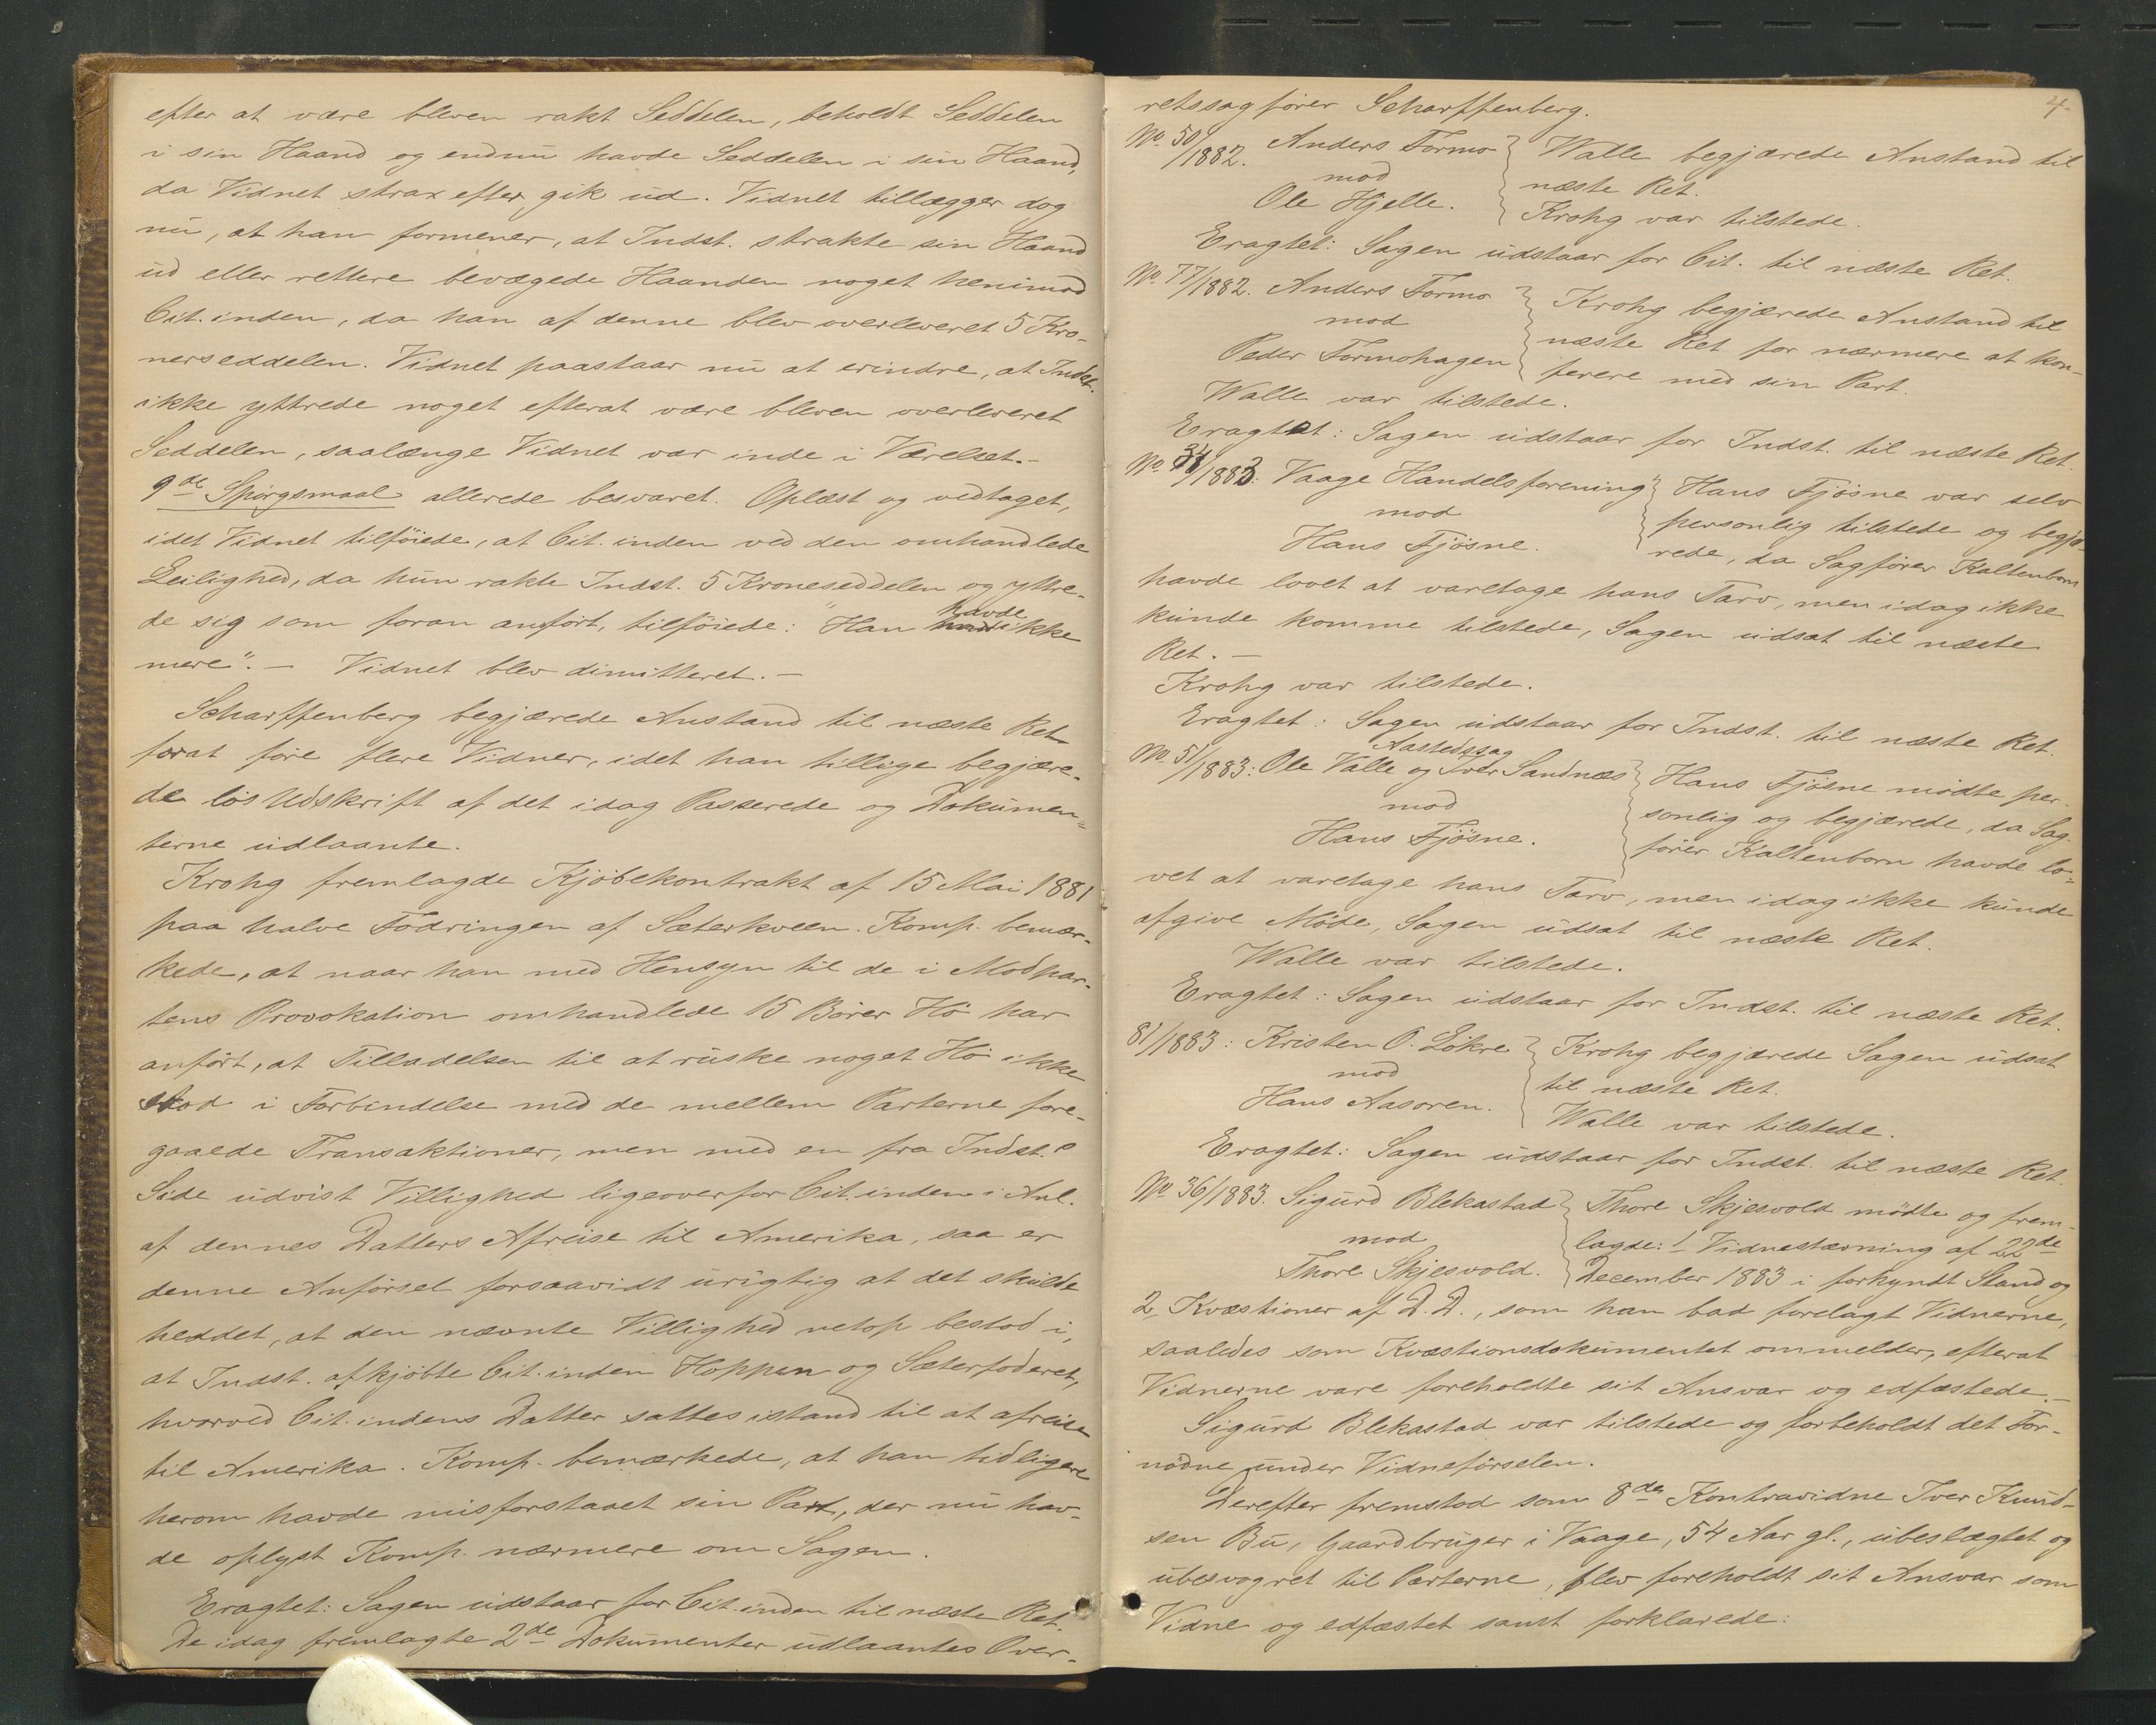 efter at være bleven rakt Seddelen, beholdt Seddelen
i sin Haand og endnu havde Seddelen i sin Haand,
da Vidnet strax efter gik ud. Vidnet tillægger dog
nu, at han formener, at Indst. strakte sin Haand
ud eller rettere bevægede Haanden noget henimod
Cit.inden, da han af denne blev overleveret 5 Kro-
nerseddelen. Vidnet paastaar nu at erindre, at Indst.
ikke yttrede noget efterat være bleven overleveret
Seddelen, saalænge Vidnet var inde i Værelset.-
9de Spørgsmaal allerede besvaret. Oplæst og vedtaget,
idet Vidnet tilføiede, at Cit.inden ved den omhandlede
Leilighed, da hun rakte Indst. 5 Kroneseddelen og yttre-
de sig som foran anført, tilføiede: "Han havde ikke
mere".- Vidnet blev dimitteret.-
Scharffenberg begjærede Anstand til næste Ret
forat føre flere Vidner, idet han tillige begjære-
de løs Udskrift af det idag Passerede og Dokumen-
terne udlaante.
Krohg fremlagde Kjøbekontrakt af 15 Mai 1881
paa halve Fodringen af Sæterkveen. Komp. bemær-
kede, at naar han med Hensyn til de i Modpar-
tens Provokation omhandlede 15 Bører Hø har
anført, at Tilladelsen til at ruske noget Hø ikke
stod i Forbindelse med de mellem Parterne fore-
gaaede Transaktioner, men med en fra Indst.s
Side udvist Villighed ligeoverfor Cit.inden i Anl.
af dennes Datters Afreise til Amerika, saa er
denne Anførsel forsaavidt urigtig at det skulde
heddet, at den nævnte Villighed netop bestod i,
at Indst. afkjøbte Cit.inden Hoppen og Sæterfoderet,
hvorved Cit.indens Datter sattes istand til at afreise
til Amerika. Komp. bemærkede, at han tidligere
herom havde misforstaaet sin Part, der nu hav-
de oplyst Komp. nærmere om Sagen.
Eragtet: Sagen udstaar for Cit.inden til næste Ret.
De idag fremlagte 2de Dokumenter udlaantes Over-
4.
retssagfører Scharffenberg.
No. 50/1882. Anders Formo Walle begjærede Anstand til
mod næste Ret.
Ole Hjelle. Krohg var tilstede.
Eragtet: Sagen udstaar for Cit. til næste Ret.
No. 77/1882. Anders Formo Krohg begjærede Anstand til
mod næste Ret for nærmere at kon-
Peder Formohagen ferere med sin Part.
Walle var tilstede.
Eragtet: Sagen udstaar for Indst. til næste Ret.
No. 34/1883: Vaage Handelsforening Hans Fjøsne var selv
mod personlig tilstede og begjæ-
Hans Fjøsne. rede, da Sagfører Kaltenborn
havde lovet at varetage hans Tarv, men idag ikke
kunde komme tilstede, Sagen udsat til næste
Ret.-
Krohg var tilstede.
Eragtet: Sagen udstaar for Indst. til næste Ret.
Aastedssag
No. 51/1883: Ole Valle og Iver Sandnæs Hans Fjøsne mødte per-
mod sonlig og begjærede, da Sag-
Hans Fjøsne. fører Kaltenborn havde lo-
vet at varetage hans Tarv, men idag ikke kunde
afgive Møde, Sagen udsat til næste Ret.
Walle var tilstede.
Eragtet: Sagen udstaar for Indst. til næste Ret.
81/1883: Kristen O. Løkre Krohg begjærede Sagen udsat
mod til næste Ret.
Hans Aasoren. Walle var tilstede.
Eragtet: Sagen udstaar for Indst. til næste Ret.
No 36/1883. Sigurd Blekastad Thore Skjesvold mødte og frem-
mod lagde: 1, Vidnestævning af 22de
Thore Skjesvold. December 1883 i forkyndt Stand og
2, Kvæstioner af D.D., som han bad forelagt Vidnerne,
saaledes som Kvæstionsdokumentet ommelder, efterat
Vidnerne vare foreholdte sit Ansvar og edfæstede.-
Sigurd Blekastad var tilstede og forbeholdt det For-
nødne under Vidneførselen.
Derefter fremstod som 8de Kontravidne Iver Knud-
sen Bu, Gaardbruger i Vaage, 54 Aar gl., ubeslægtet og
ubesvogret til Parterne, blev foreholdt sit Ansvar som
Vidne og edfæstet samt forklarede: